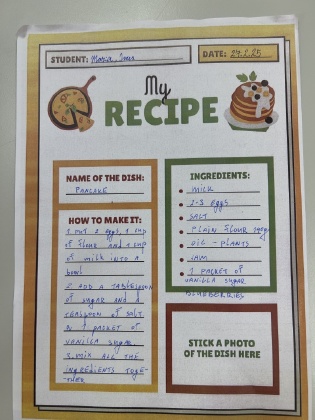 STUDENT: Maria, Ines
DATE: 27.2.25
My
RECIPE
NAME OF THE DISH:
PANCAKE
HOW TO MAKE IT:
1 PUT 2 eggs, 1 cup
of flour and 1 cup
of milk into a
bowl
2 ADD A TABLESPOON
of sugar and a
TEASPOON of SALT
1 PACKET of
VANILLA SUGAR
3. MIX ALL THE
INGREDIENTS TOGE-
THER
INGREDIENTS:
MILK
2-3 eggs
SALT
PLAIN FLOUR
OIL - PLANTS
JAM
1 PACKET OF
VANILLA SUGAR
BLUEBERRIES
STICK A PHOTO
OF THE DISH HERE